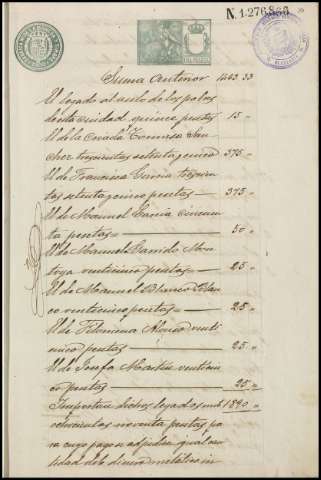 N. 1.276,868
Suma anterior 1403 33
Id legado al asilo de los pobres
de esta ciudad, quince pesetas 15 "
Id de la criada Tomasa San-
chez trescientas setenta y cinco 375 "
Id de Francisca Garcia trescien-
tas setenta y cinco pesetas — 375 "
Id de Manuel Garcia cincuen-
ta pesetas — 50 "
Id de Manuel Garrido Mon-
toya veinticinco pesetas — 25 "
Id de Manuel Blanco
veinticinco pesetas — 25 "
Id de Filomena Alonso veinti-
cinco pesetas — 25 "
Id de Josefa Martin veinticin-
co pesetas — 25 "
Importan dichos legados mil 1890 "
ochocientas noventa pesetas pa-
ra cuyo pago se adjudica igual can-
tidad del dinero metálico in